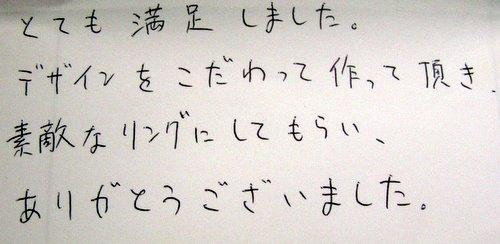 とても満足しました。
デザインをこだわって作って頂き、
素敵なリングにしてもらい、
ありがとうございました。